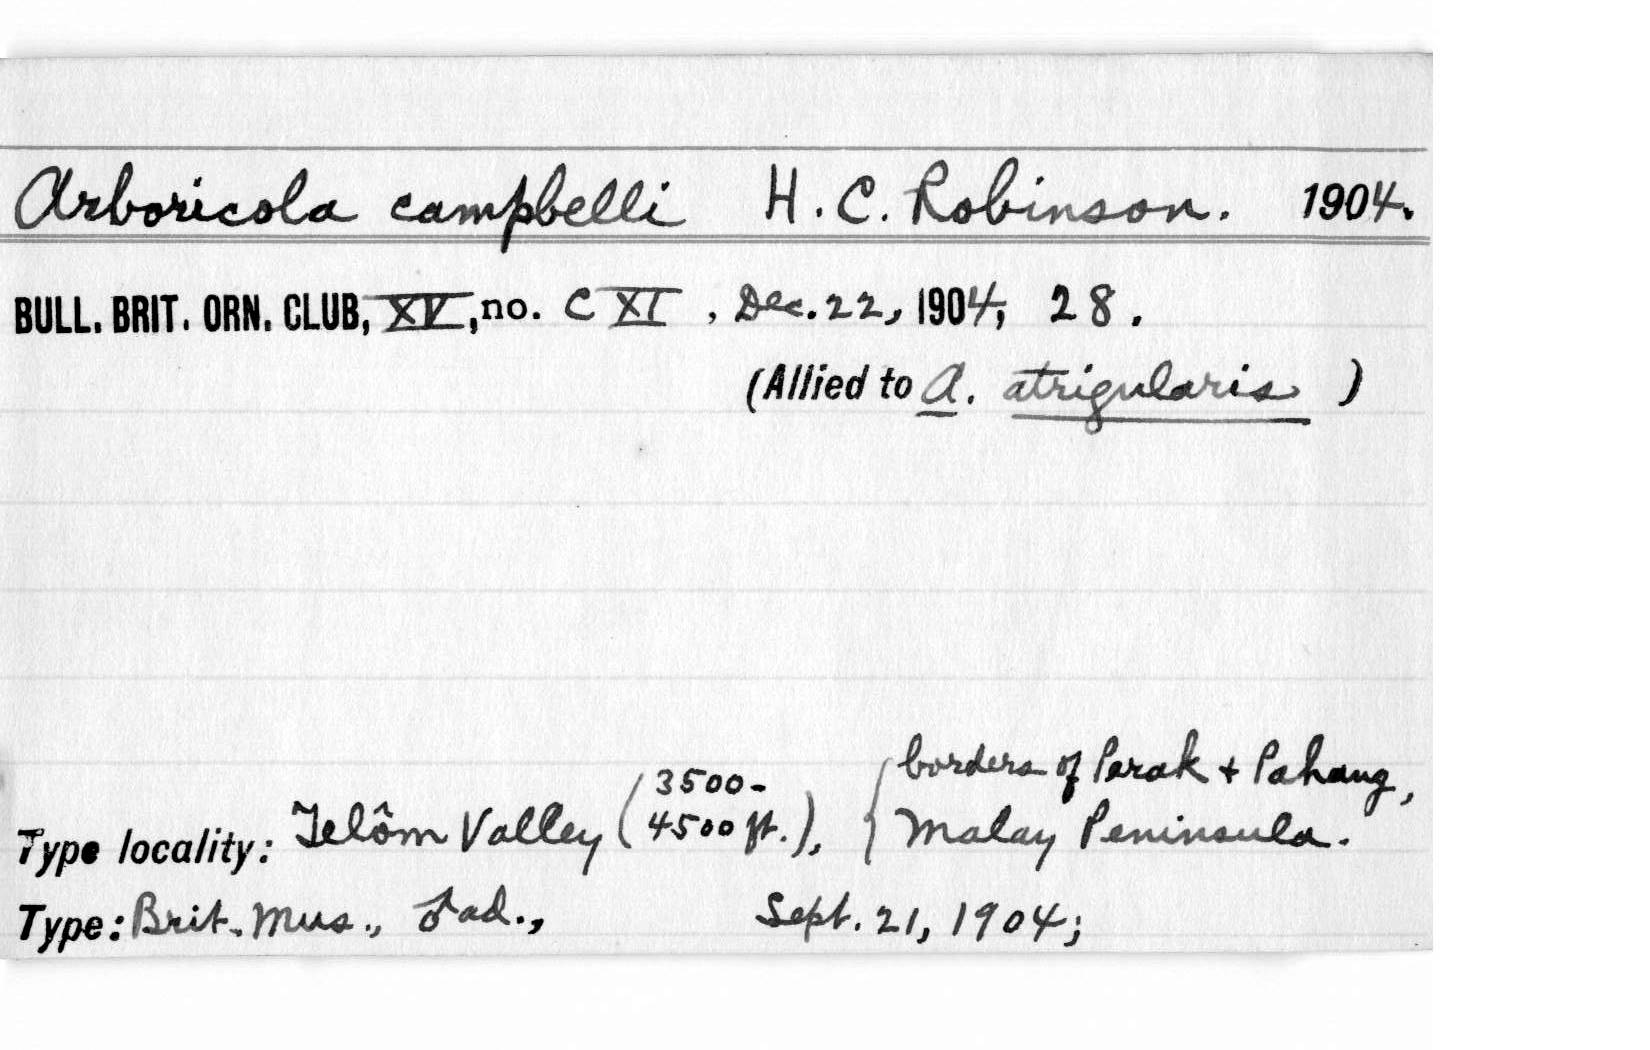 Arboricola campbelli H. C. Robinson. 1904.
BULL. BRIT. ORN. CLUB, XV, no. CXI, Dec. 22, 1904, 28.
(Allied to A. atrigularis )
Type locality: Telôm Valley (3500-4500 ft.), {borders of Perak + Pahang, Malay Peninsula.
Type: Brit. Mus., ♂ ad., Sept. 21, 1904;